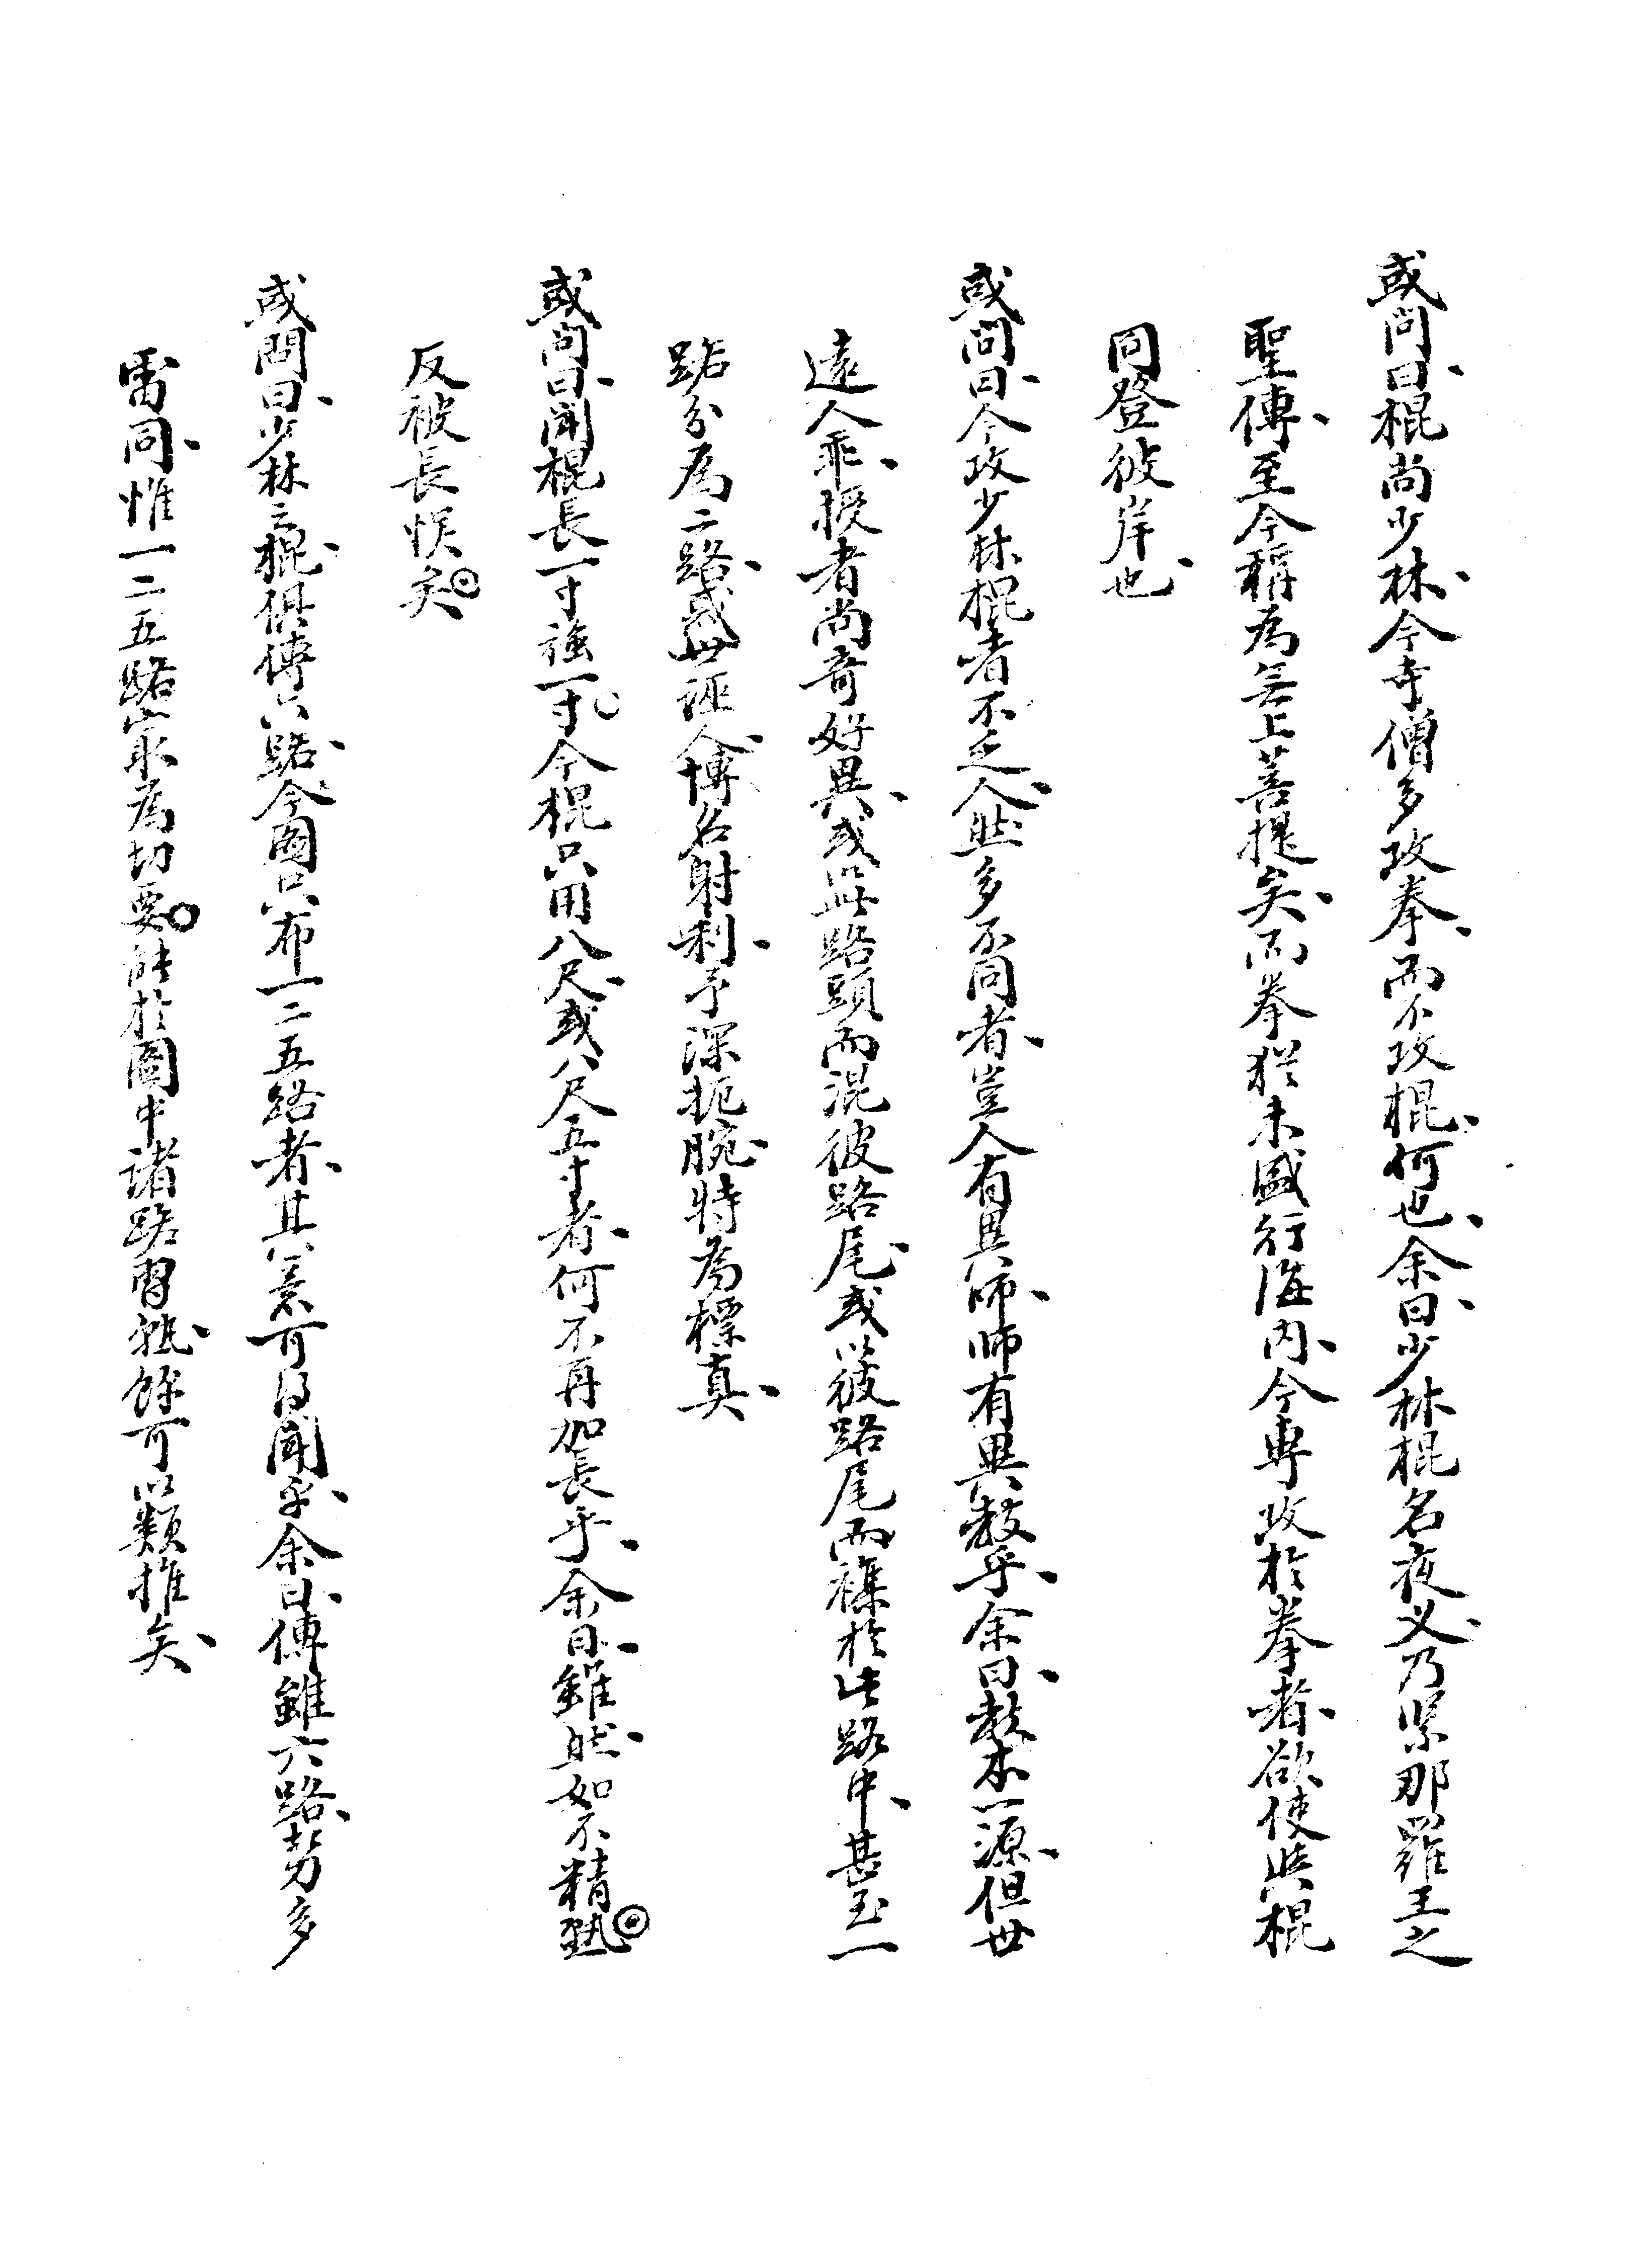 或問曰棍尚少林、今寺僧多攻拳、而不攻棍、何也、余曰、少林棍名夜叉、乃紧那羅王之
聖傳、至今稱為無上菩提矣、而拳猶未盛行海内、今專攻於拳者、欲使與棍
同登彼岸也、
或問曰、今攻少林棍者、不乏人、然多不同者、豈人有異師、師有異教乎、余曰、教本一源、但世
遠人乖、授者尚奇好異、或以此路頭而混彼路尾、或以彼路尾而襍於此路中、甚至一
路分為二路、惑世誣人、博名射利、予深扼腕、特為標真、
或問曰、聞棍長一寸強一寸。今棍只用八尺、或八尺五寸者、何不再加長乎、余曰、雖然、如不精熟◎
反被長悞矣◎
或問曰、少林之棍、俱傳六路、今圖只布一二五路者、其意可得聞乎、余曰、傳雖六路、勢多
雷同、惟一二五路最為切要○能於圖中諸路習熟、餘可以類推矣、